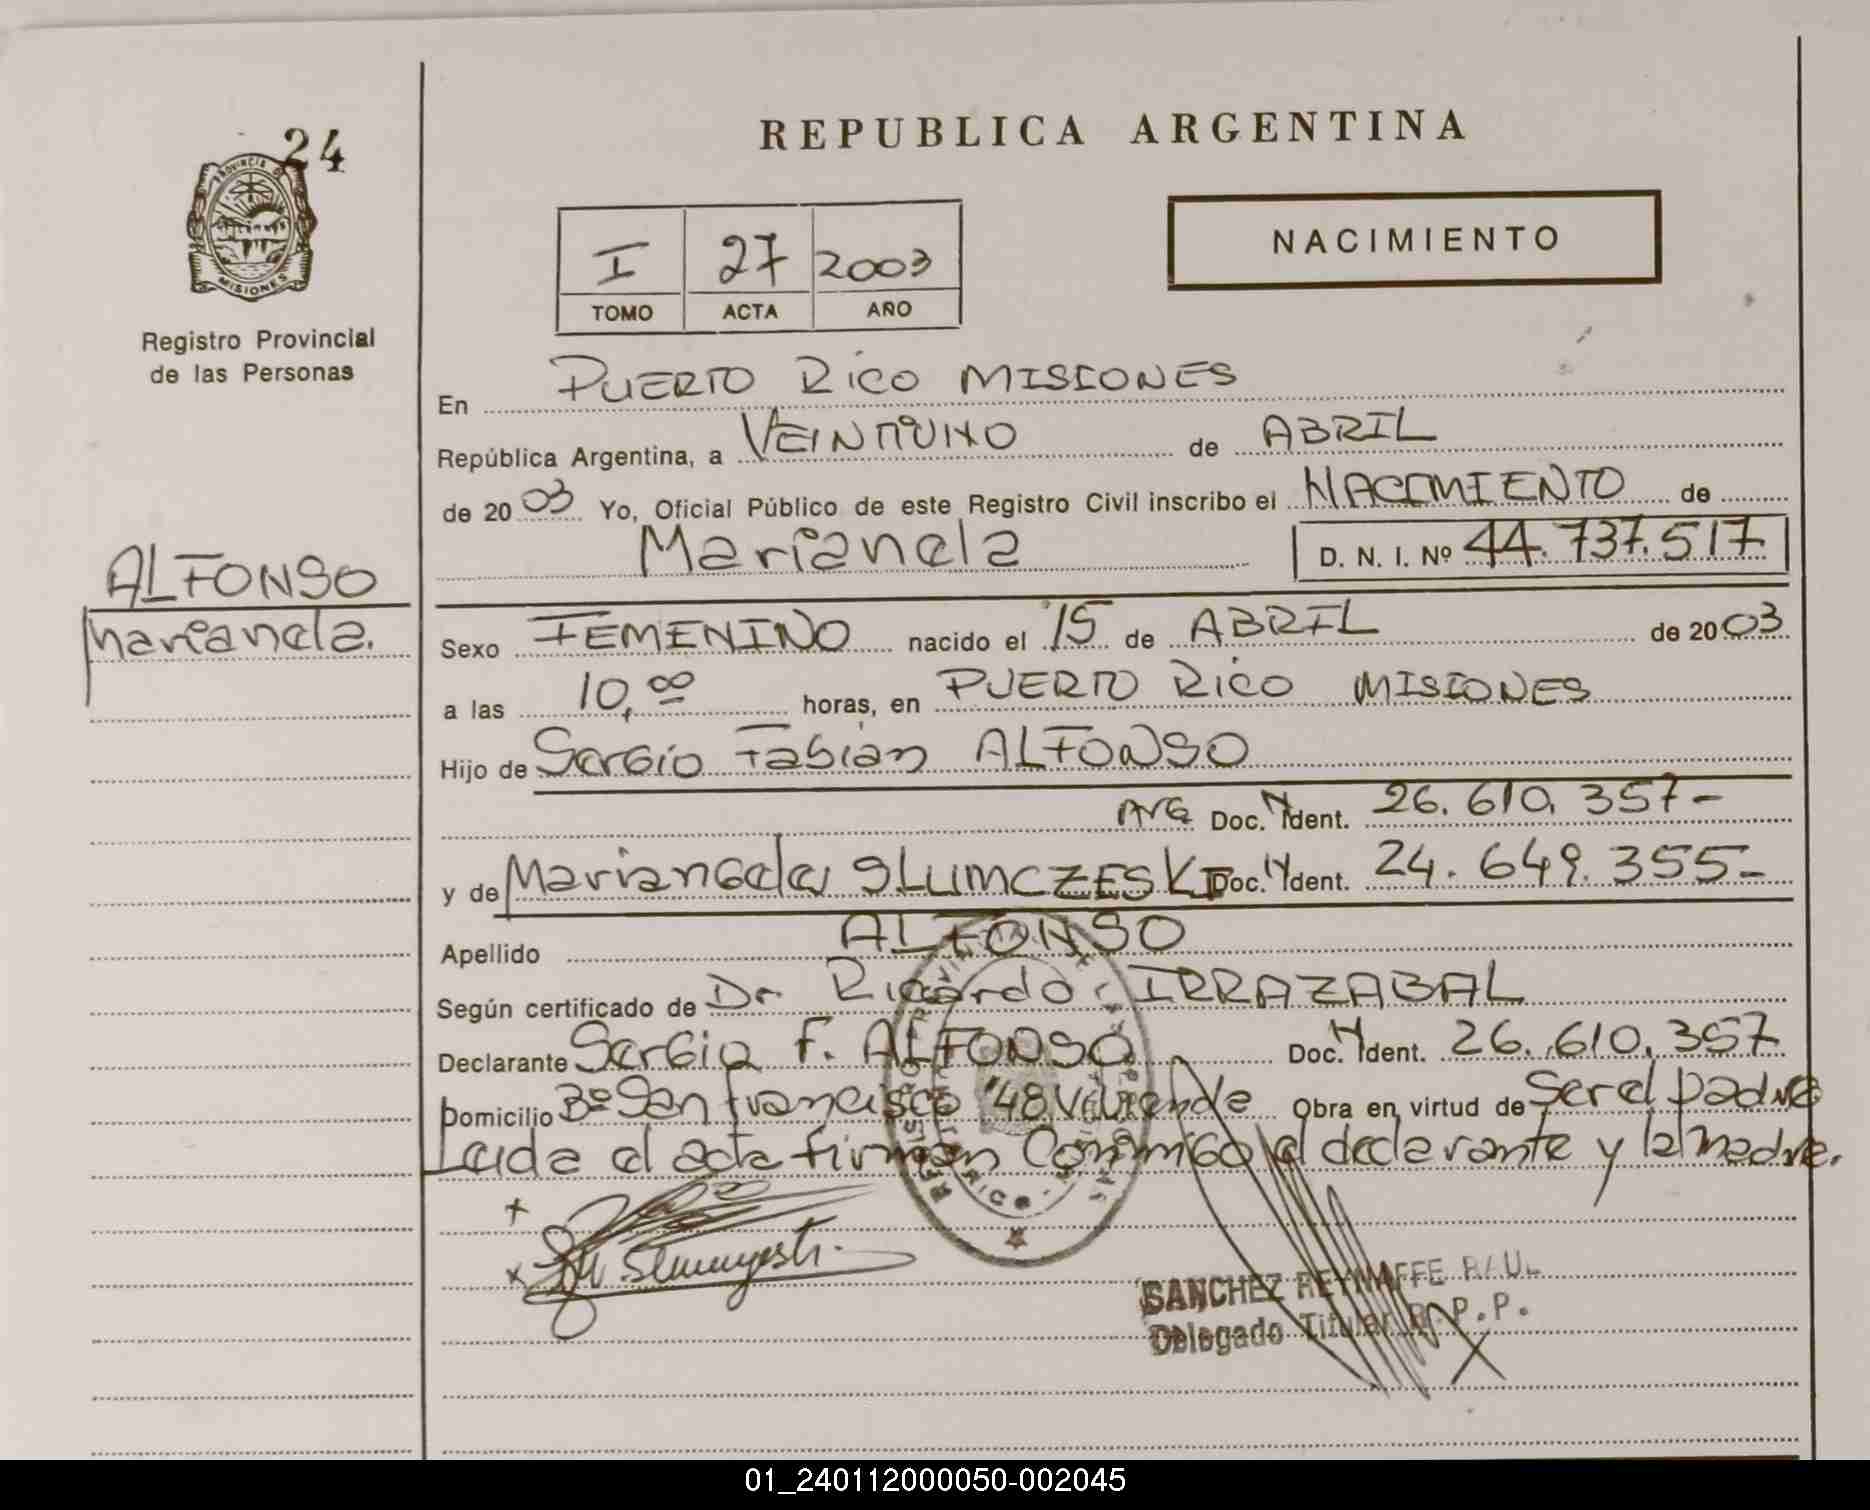 24
PROVINCIA DE
MISIONES
Registro Provincial
de las Personas
ALFONSO
Marianela.
REPUBLICA ARGENTINA
I 27 2003
TOMO ACTA AÑO
NACIMIENTO
En PUERTO RICO MISIONES
República Argentina, a VEINTIUNO de ABRIL
de 2003 Yo, Oficial Público de este Registro Civil inscribo el NACIMIENTO de
Marianela D. N. I. Nº 44.737.517
Sexo FEMENINO nacido el 15 de ABRIL de 2003
a las 10,00 horas, en PUERTO RICO MISIONES
Hijo de Sergio Fabián ALFONSO
ARG Doc. N Ident. 26.610.357-
y de Mariangela SLUMCZESKI Doc. N Ident. 24.649.355-
Apellido ALFONSO
Según certificado de Dr Ricardo IRRAZABAL
Declarante Sergio F. ALFONSO Doc. N Ident. 26.610.357
Domicilio Bº San Francisco "48 Vivienda Obra en virtud de Ser el padre
Leida el acta firman Conmigo el declarante y la madre.
SANCHEZ REYNAFFE RAUL
Delegado Titular R.P.P.
01_240112000050-002045